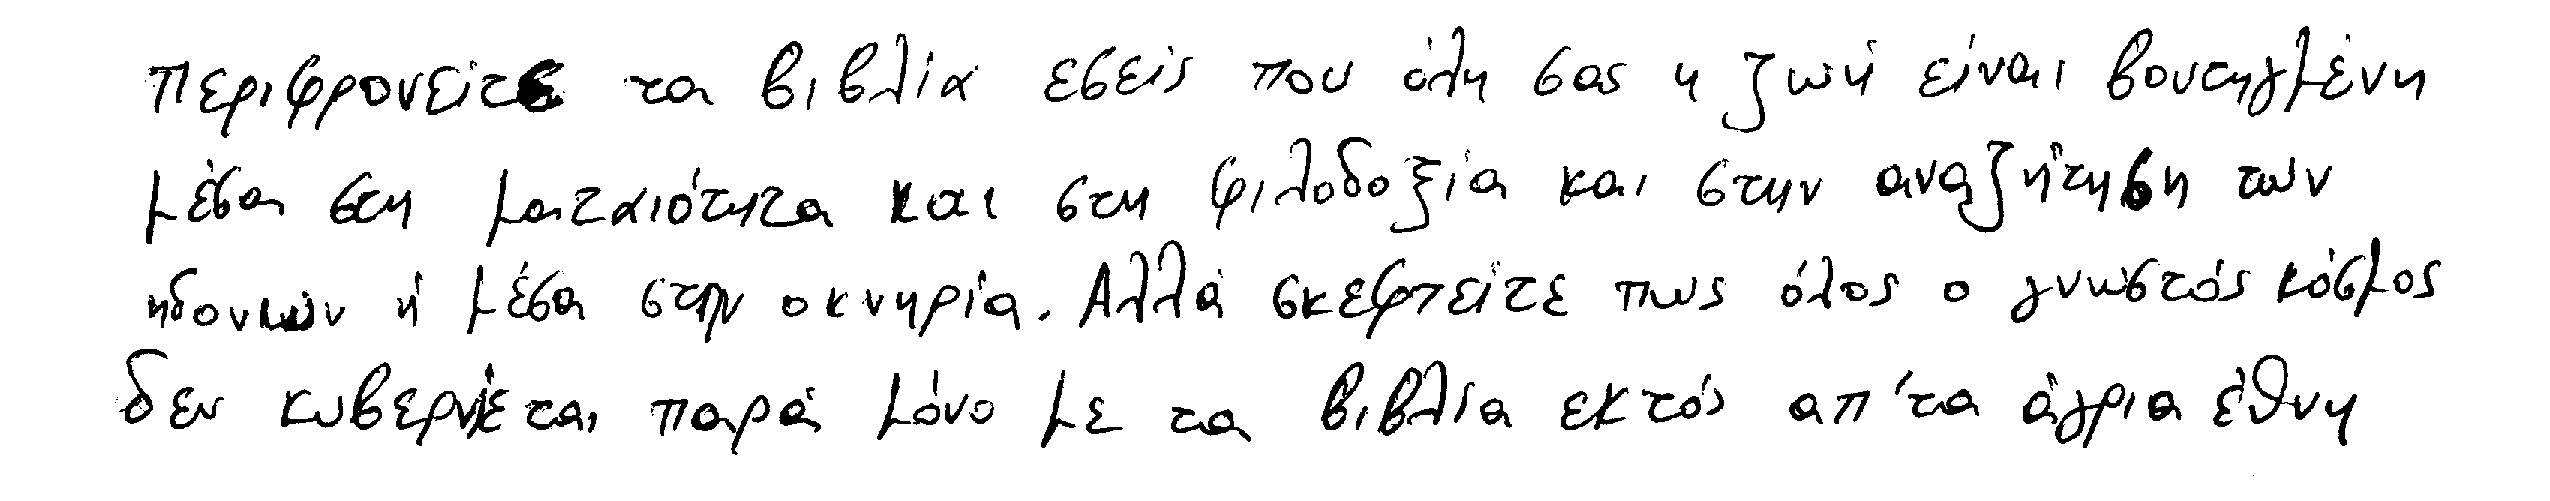 περιφρονείτε τα βιβλία εσείς που όλη σας η ζωή είναι βουτηγμένη
μέσα στη ματαιότητα και στη φιλοδοξία και στην αναζήτηση των
ηδονών ή μέσα στην οκνηρία. Αλλά σκεφτείτε πως όλος ο γνωστός κόσμος
δεν κυβερνιέται παρά μόνο με τα βιβλία εκτός απ' τα άγρια έθνη